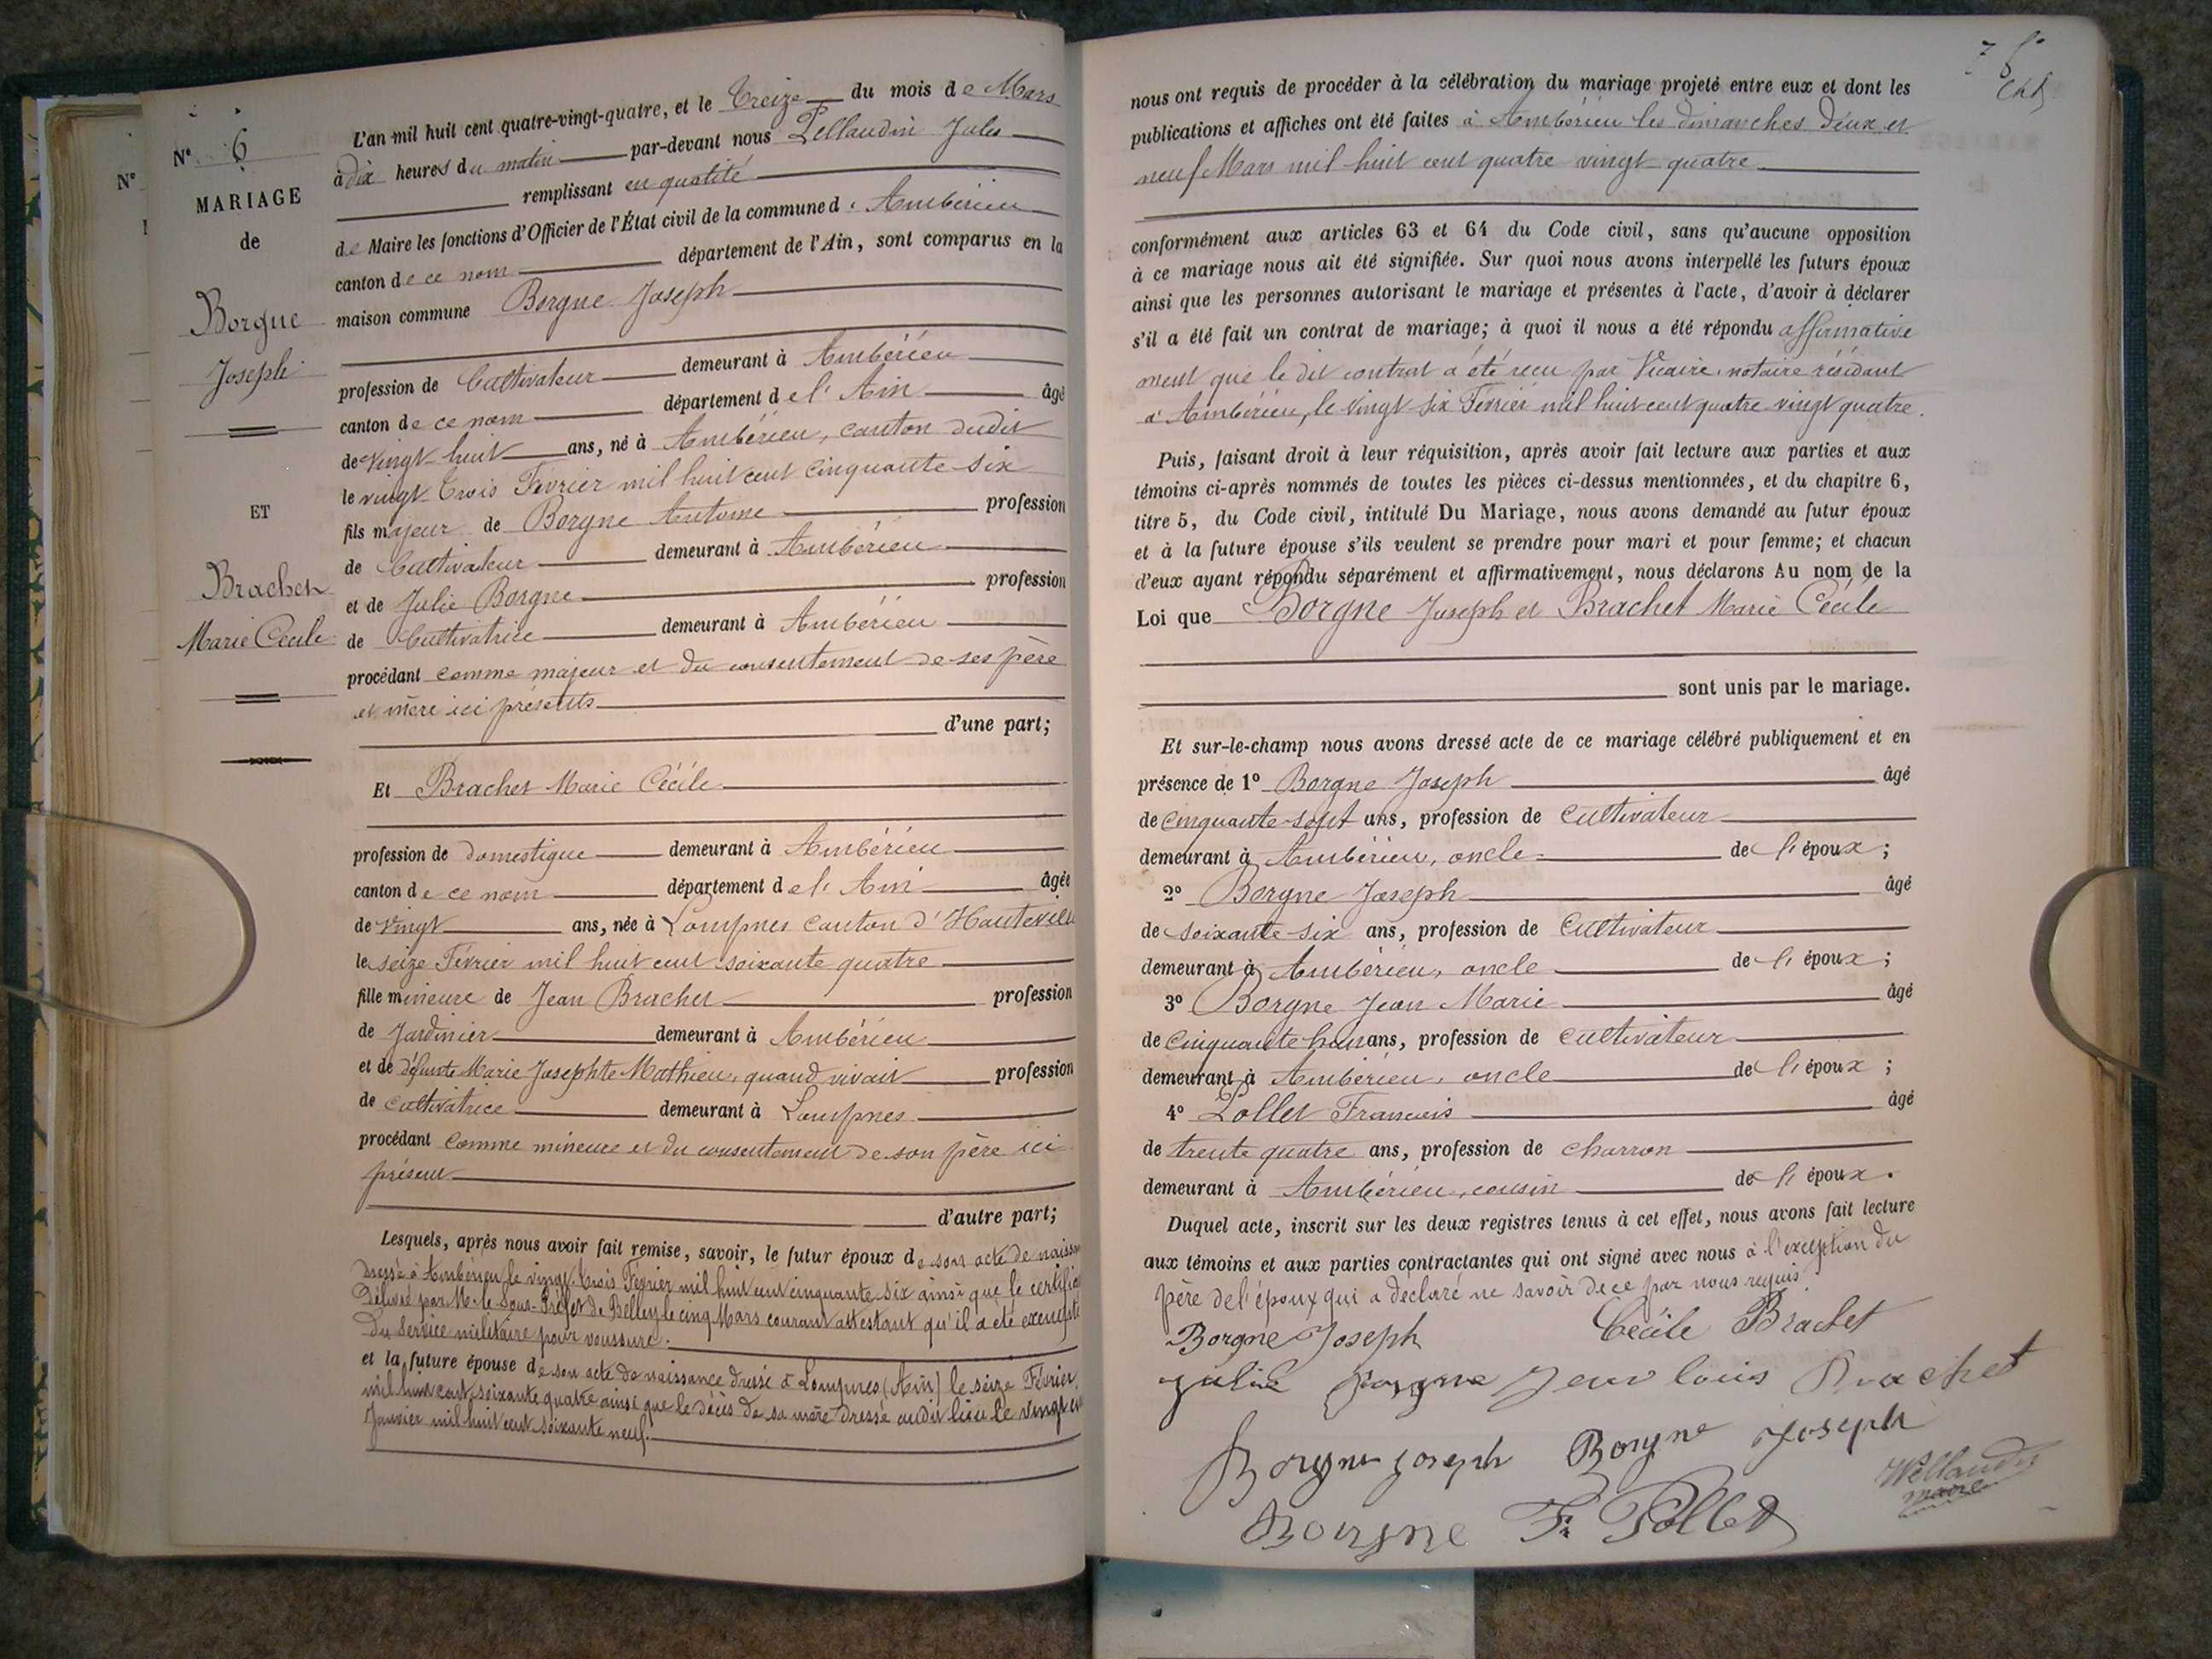 N° 6
MARIAGE
de
Borgne
Joseph
ET
Brachet
Marie Cécile
N°
L'an mil huit cent quatre-vingt-quatre, et le Treize du mois de Mars
à dix heures du matin par-devant nous Pellaudin Jules
remplissant en qualité
de Maire les fonctions d'Officier de l'État civil de la commune d' Ambérieu
canton de ce nom département de l'Ain, sont comparus en la
maison commune Borgne Joseph
profession de Cultivateur demeurant à Ambérieu
canton de ce nom département de l'Ain âgé
de vingt huit ans, né à Ambérieu, canton dudit
le vingt trois Février mil huit cent cinquante six
fils majeur de Borgne Antoine profession
de Cultivateur demeurant à Ambérieu
et de Julie Borgne profession
de Cultivatrice demeurant à Ambérieu
procédant comme majeur et du consentement de ses père
et mère ici présents
d'une part;
Et Brachet Marie Cécile
profession de domestique demeurant à Ambérieu
canton de ce nom département de l'Ain âgée
de vingt ans, née à Lompnes canton d'Hauteville
le seize Février mil huit cent soixante quatre
fille mineure de Jean Brachet profession
de Jardinier demeurant à Ambérieu
et de défunte Marie Josephte Mathieu, quand vivait profession
de cultivatrice demeurant à Lompnes
procédant comme mineure et du consentement de son père ici
présent
d'autre part;
Lesquels, après nous avoir fait remise, savoir, le futur époux de son acte de naiss
dressé à Ambérieu le vingt trois Février mil huit cent cinquante six ainsi que le certific
délivré par Mr le Sous-Préfet de Belley le cinq Mars courant attestant qu'il a été exempté
du service militaire pour voussure.
et la future épouse de son acte de naissance dressé à Lompnes (Ain) le seize Février
mil huit cent soixante quatre ainsi que le décès de sa mère dressé audit lieu le vingt
Janvier mil huit cent soixante neuf.
nous ont requis de procéder à la célébration du mariage projeté entre eux et dont les
publications et affiches ont été faites à Ambérieu les dimanches deux et
neuf Mars mil huit cent quatre vingt quatre
conformément aux articles 63 et 64 du Code civil, sans qu'aucune opposition
à ce mariage nous ait été signifiée. Sur quoi nous avons interpellé les futurs époux
ainsi que les personnes autorisant le mariage et présentes à l'acte, d'avoir à déclarer
s'il a été fait un contrat de mariage; à quoi il nous a été répondu affirmative
ment que le dit contrat a été reçu par Vicaire, notaire résidant
à Ambérieu, le vingt six Février mil huit cent quatre vingt quatre.
Puis, faisant droit à leur réquisition, après avoir fait lecture aux parties et aux
témoins ci-après nommés de toutes les pièces ci-dessus mentionnées, et du chapitre 6,
titre 5, du Code civil, intitulé Du Mariage, nous avons demandé au futur époux
et à la future épouse s'ils veulent se prendre pour mari et pour femme; et chacun
d'eux ayant répondu séparément et affirmativement, nous déclarons Au nom de la
Loi que Borgne Joseph et Brachet Marie Cécile
sont unis par le mariage.
Et sur-le-champ nous avons dressé acte de ce mariage célébré publiquement et en
présence de 1° Borgne Joseph âgé
de cinquante-sept ans, profession de Cultivateur
demeurant à Ambérieu, oncle de l'époux;
2° Borgne Joseph âgé
de soixante-six ans, profession de Cultivateur
demeurant à Ambérieu, oncle de l'époux;
3° Borgne Jean Marie âgé
de cinquante ans, profession de cultivateur
demeurant à Ambérieu, oncle de l'époux;
4° Pollet François âgé
de trente quatre ans, profession de charron
demeurant à Ambérieu, cousin de l'époux.
Duquel acte, inscrit sur les deux registres tenus à cet effet, nous avons fait lecture
aux témoins et aux parties contractantes qui ont signé avec nous à l'exception du
père de l'époux qui a déclaré ne savoir de ce par nous requis.
Borgne Joseph Cécile Brachet
Julie Borgne Jean louis Brachet
Borgne joseph Borgne Joseph
Borgne F. Pollet
Pellaudin
maire